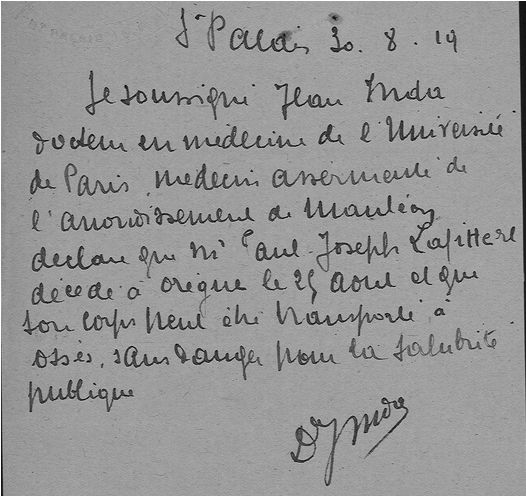 St Palais 30.8.19
Je soussigné Jean Inda
docteur en médecine de l'Université
de Paris, médecin assermenté de
l'arrondissement de Mauléon
déclare que Mr Paul Joseph Lafittere
décédé à orègue le 25 Aout et que
son corps peut être transporté à
ossès, sans danger pour la salubrité
publique
Dr J Inda